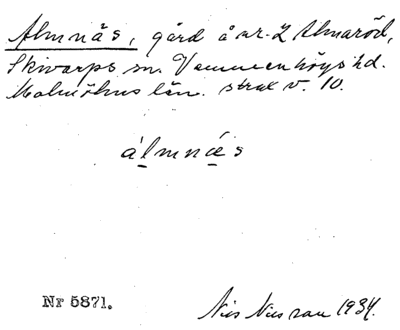 Almnäs, gård å nr. 2 Almaröd,
Skivarps sn. Vemmenhögs hd.
Malmöhus län. strax v. 10.
álmnǽs
Nr 5871.
Nils Nilsson 1934.